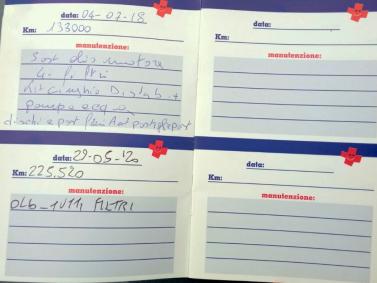 data: 04-07-18
Km: 133000
manutenzione:
Sost olio motore
4 filtri
Kit cinghia Distrib. +
pompa acqua
dischi e post
data: 29-05-20
Km: 225.520
manutenzione:
OLIO - TUTTI FILTRI
data:
Km:
manutenzione:
data:
Km:
manutenzione: